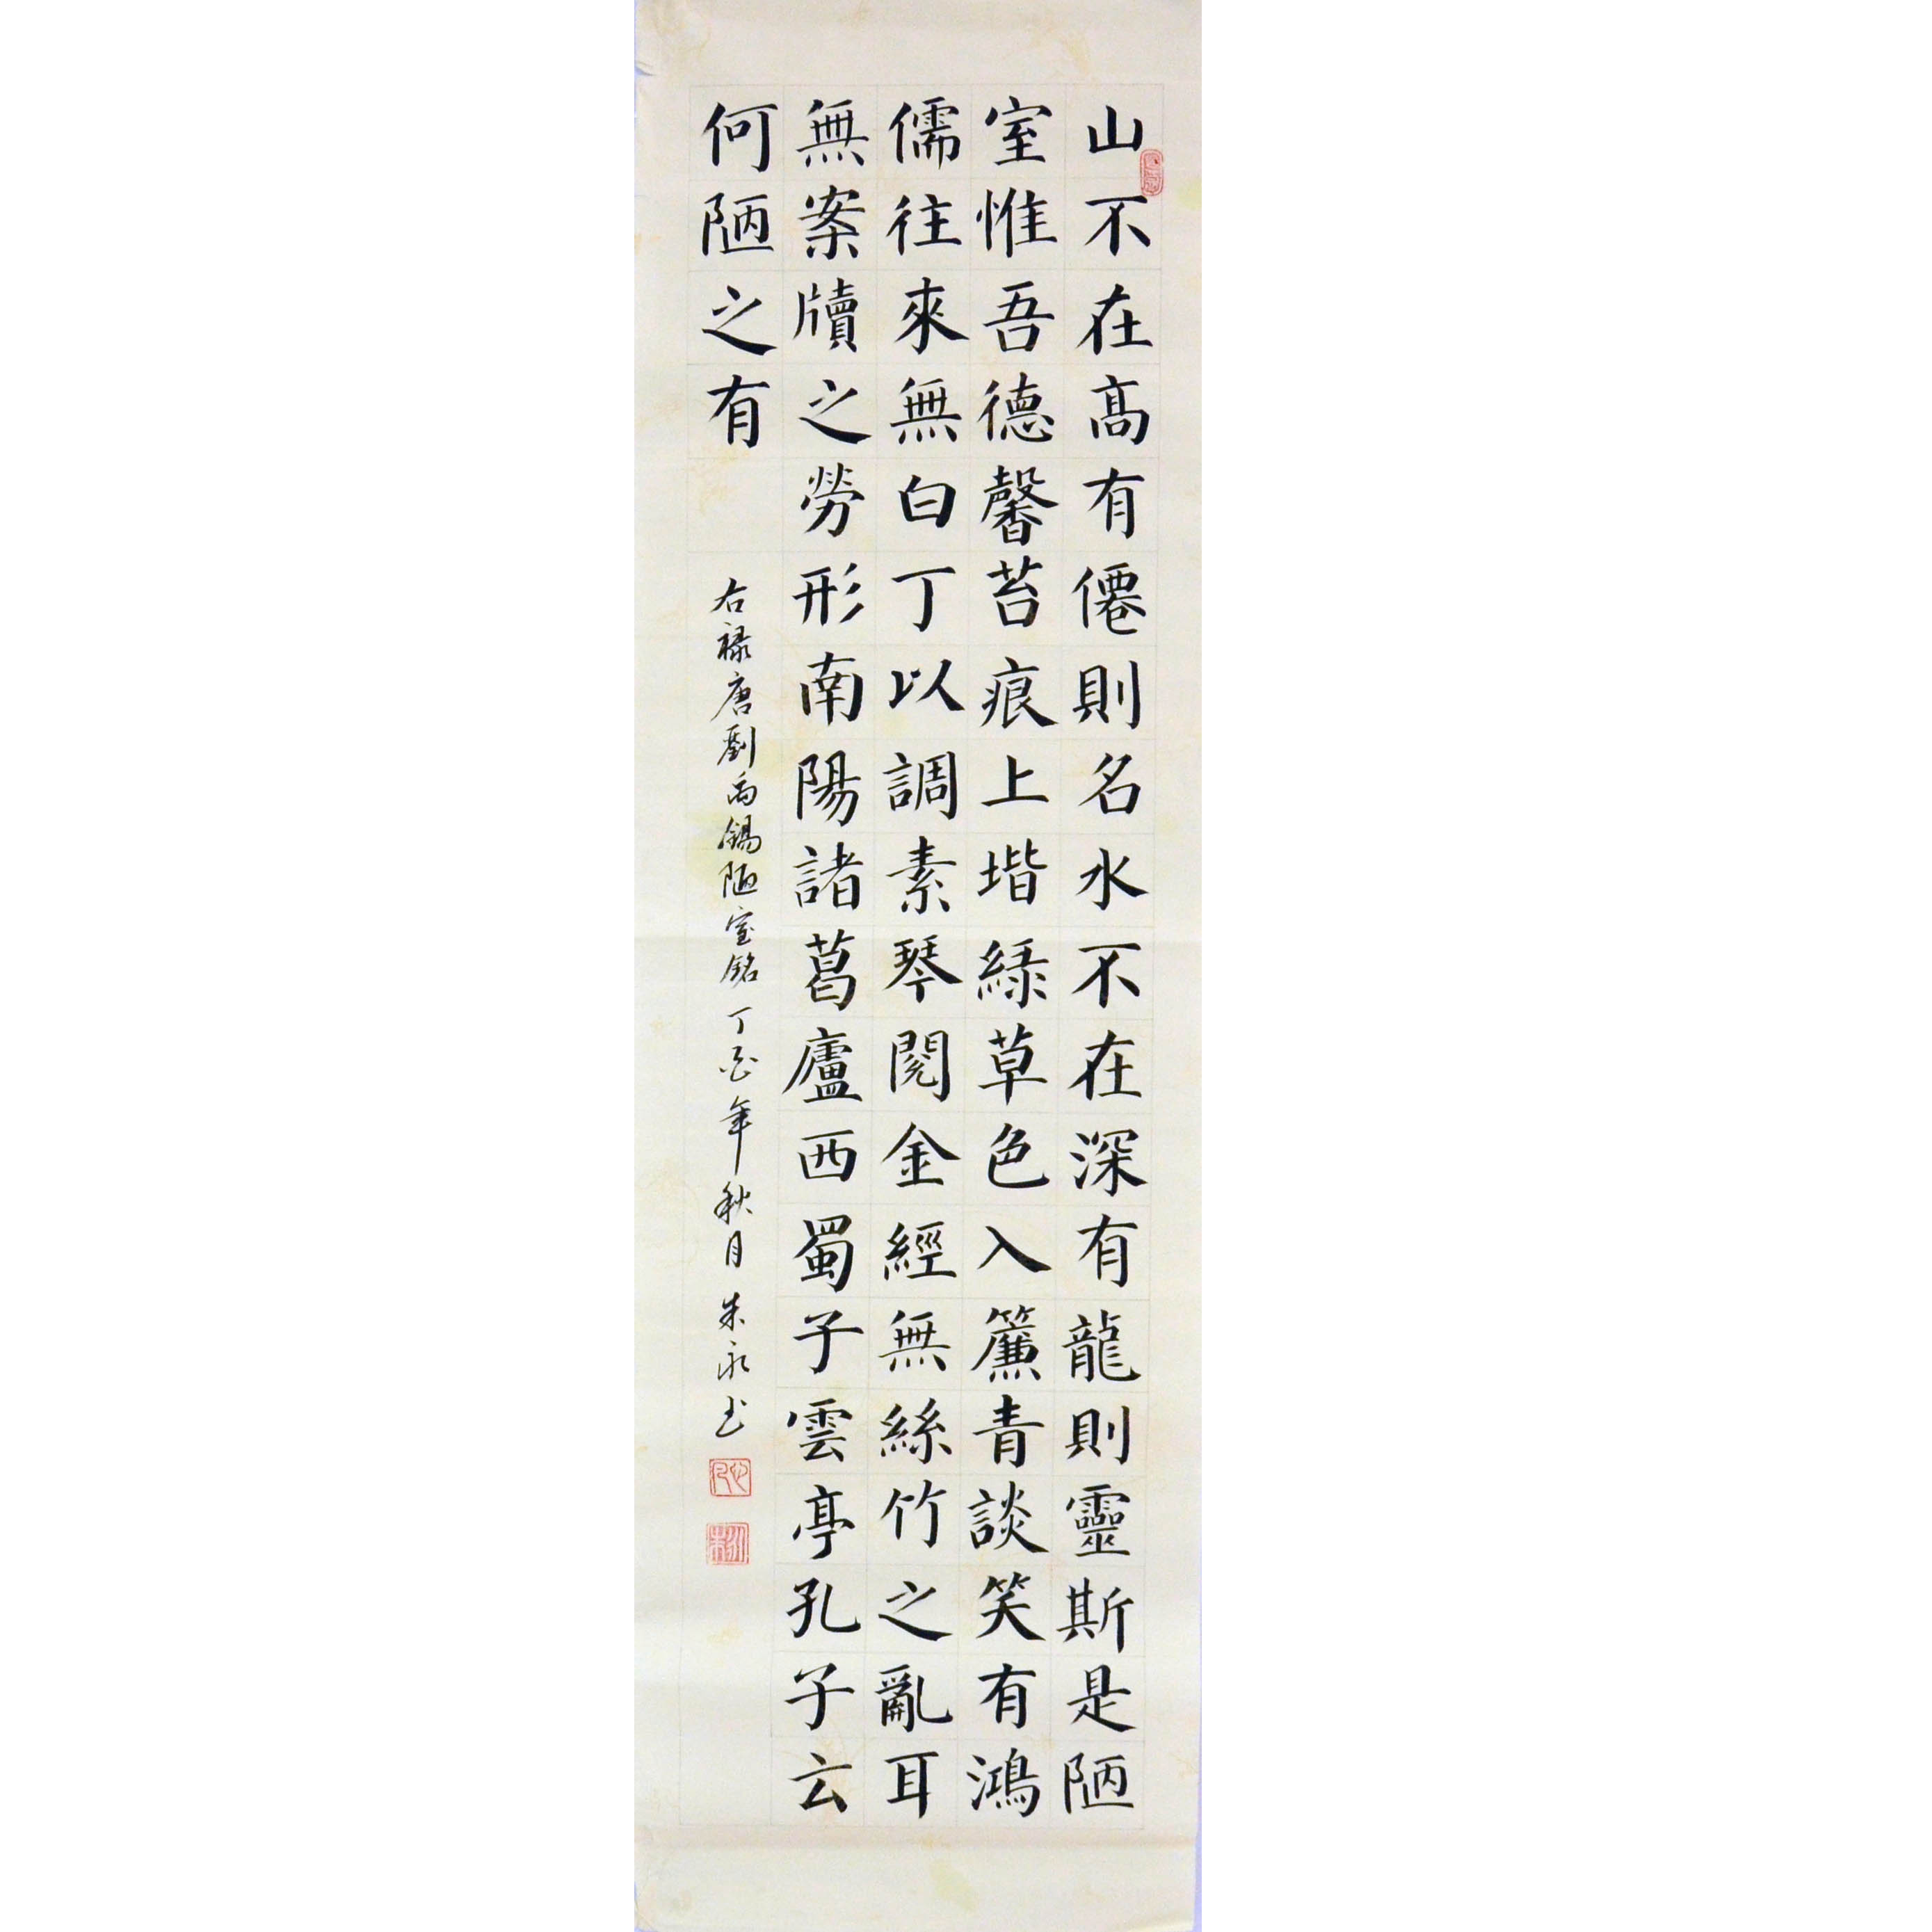 山不在高有僊則名水不在深有龍則靈斯是陋
室惟吾德馨苔痕上堦綠草色入簾青談笑有鴻
儒往來無白丁以調素琴閱金經無絲竹之亂耳
無案牘之勞形南陽諸葛廬西蜀子雲亭孔子云
何陋之有
右禄唐劉禹錫陋室銘丁酉年秋月朱永书